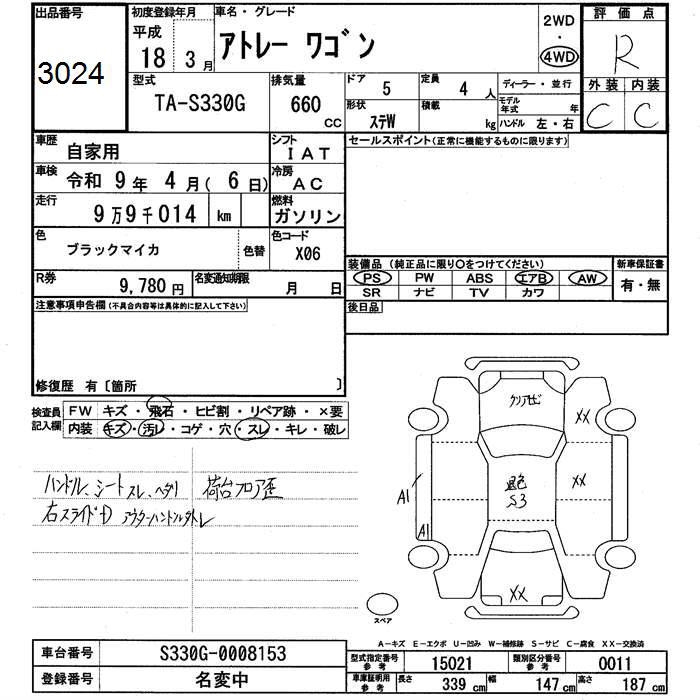 出品番号
3024
初度登録年月
平成
18 3月
車名・グレード
アトレー ワゴン
2WD
・
4WD
評価点
R
型式
TA-S330G
排気量
660
CC
ドア 5
定員 4 人
ディーラー・並行
外装 内装
C C
形状 ステW
積載 kg
モデル年式 年
ハンドル 左・右
車歴
自家用
シフト
IAT
セールスポイント(正常に機能するものに限ります)
車検
令和 9年 4月(6日)
冷房
AC
走行
9万9千014 km
燃料
ガソリン
色
ブラックマイカ
色替
色コード
X06
R券
9,780円
名変通知期限
月 日
装備品 (純正品に限り○をつけてください)
新車保証書
PS PW ABS エアB AW
有・無
SR ナビ TV カワ
注意事項申告欄(不具合内容等は具体的に記入して下さい)
後日品
修復歴 有〔箇所 〕
検査員記入欄
FW キズ・飛石・ヒビ割・リペア跡・×要
内装 キズ・汚レ・コゲ・穴・スレ・キレ・破レ
ハンドル、シートスレ、ヘタリ
荷台フロア歪
右スライドD アウターハンドル外レ
クリアトビ
XX
XX
退色
S3
A1
A1
XX
スペア
A-キズ E-エクボ U-凹み W-補修跡 S-サビ C-腐食 XX-交換済
車台番号
S330G-0008153
型式指定番号 参考
15021
類別区分番号 参考
0011
登録番号
名変中
車庫証明用 参考
長さ 339 cm
幅 147 cm
高さ 187 cm